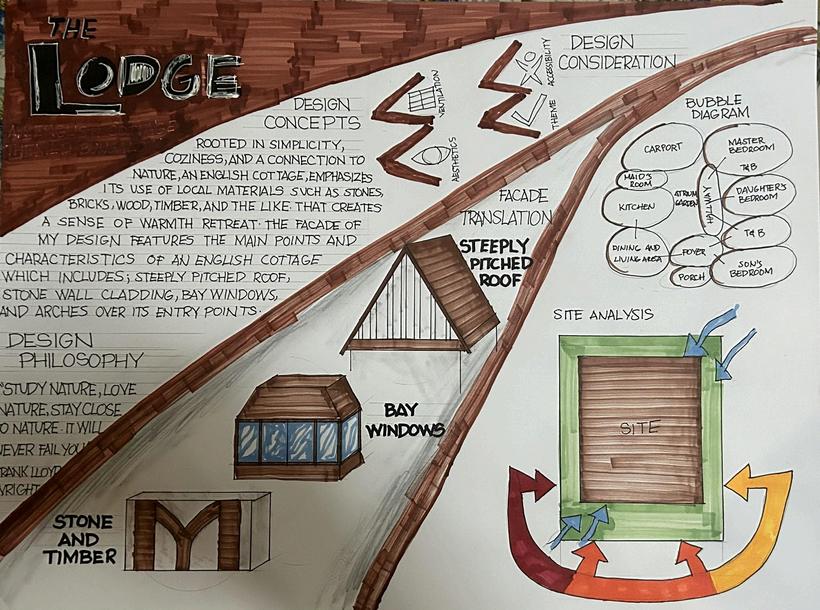 THE
LODGE
DESIGN
CONCEPTS
ROOTED IN SIMPLICITY,
COZINESS, AND A CONNECTION TO
NATURE, AN ENGLISH COTTAGE, EMPHASIZES
ITS USE OF LOCAL MATERIALS SUCH AS STONES,
BRICKS, WOOD, TIMBER, AND THE LIKE. THAT CREATES
A SENSE OF WARMTH RETREAT. THE FACADE OF
MY DESIGN FEATURES THE MAIN POINTS AND
CHARACTERISTICS OF AN ENGLISH COTTAGE
WHICH INCLUDES; STEEPLY PITCHED ROOF,
STONE WALL CLADDING, BAY WINDOWS,
AND ARCHES OVER ITS ENTRY POINTS.
DESIGN
PHILOSOPHY
"STUDY NATURE, LOVE
NATURE, STAY CLOSE
TO NATURE. IT WILL
NEVER FAIL YOU
FRANK LLOYD
WRIGHT
DESIGN
CONSIDERATION
VENTILATION
AESTHETICS
ACCESSIBILITY
THEME
FACADE
TRANSLATION
STEEPLY
PITCHED
ROOF
BAY
WINDOWS
STONE
AND
TIMBER
BUBBLE
DIAGRAM
CARPORT
MASTER
BEDROOM
T&B
MAID'S
ROOM
KITCHEN
ATRIUM
GARDEN
HALLWAY
DAUGHTER'S
BEDROOM
T&B
DINING AND
LIVING AREA
FOYER
PORCH
SON'S
BEDROOM
SITE ANALYSIS
SITE